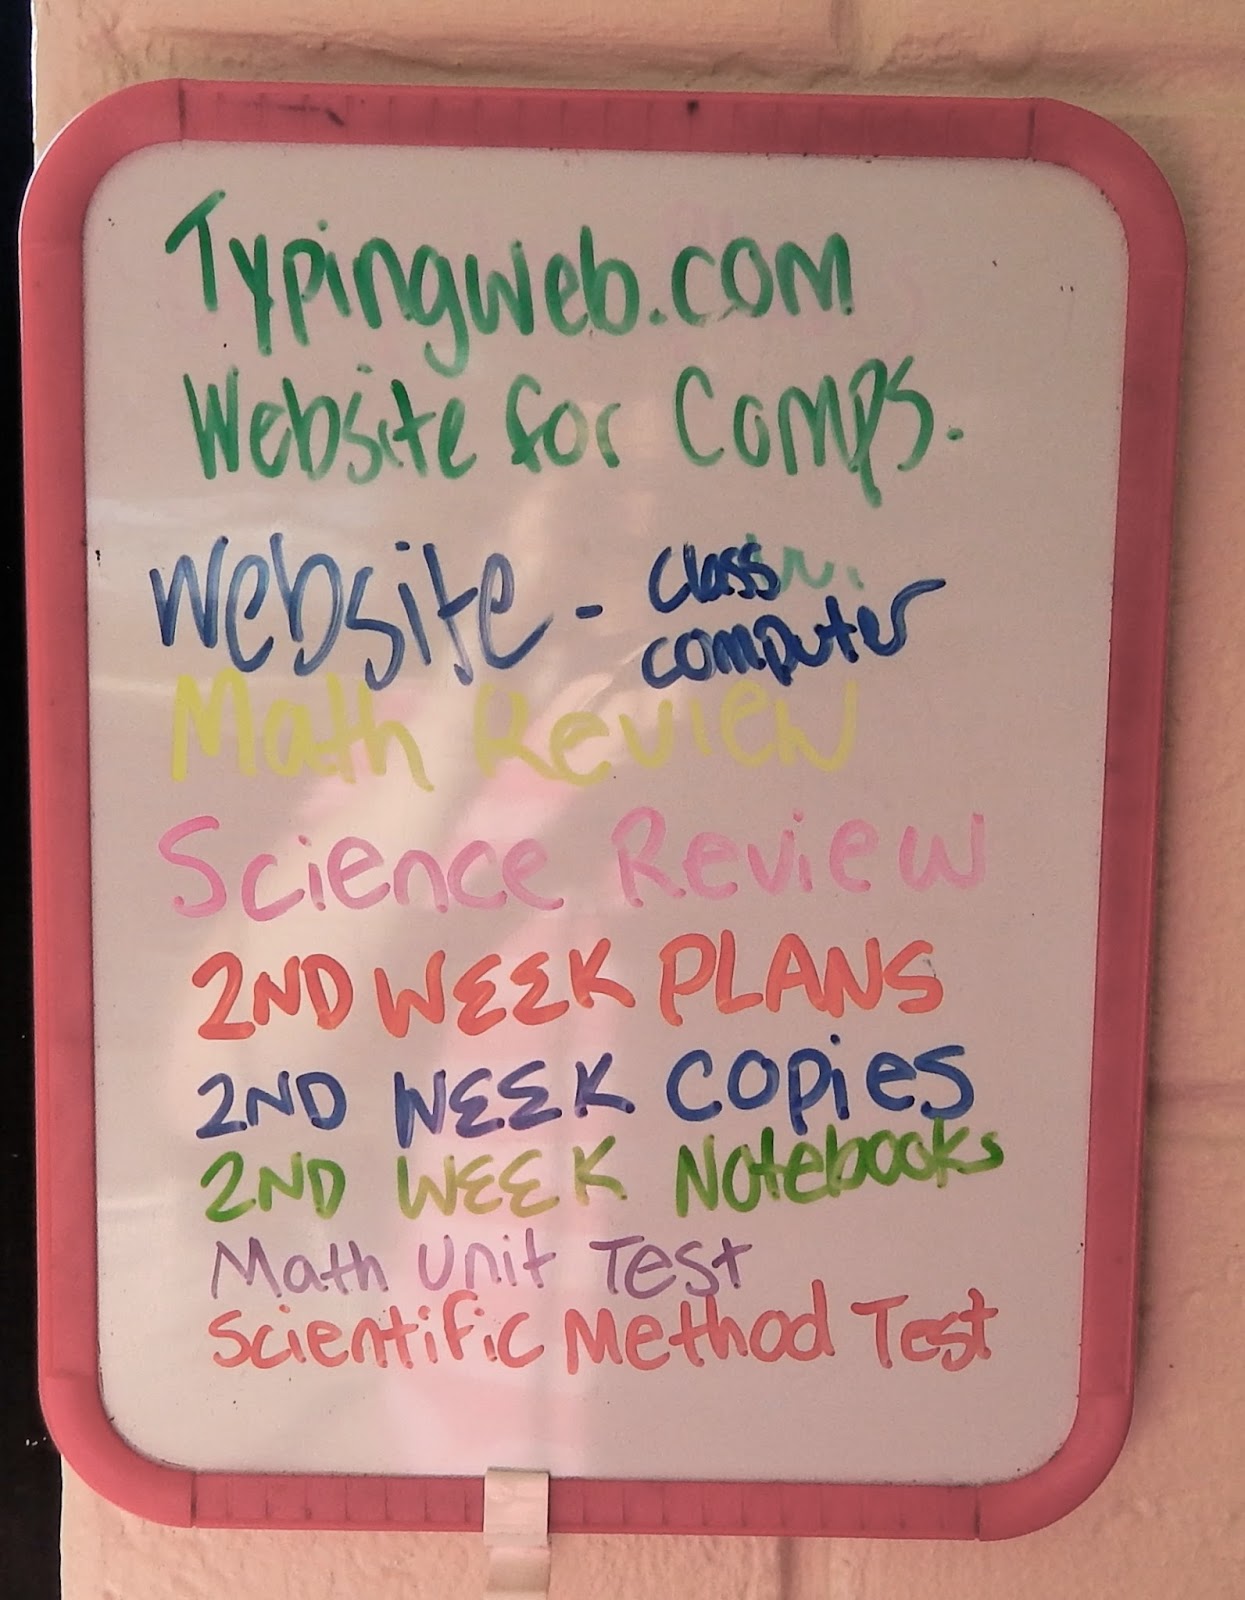 Typingweb.com
Website for Comps.
Website - class
computer
Math Review
Science Review
2ND WEEK PLANS
2ND WEEK Copies
2ND WEEK Notebooks
Math Unit Test
Scientific Method Test